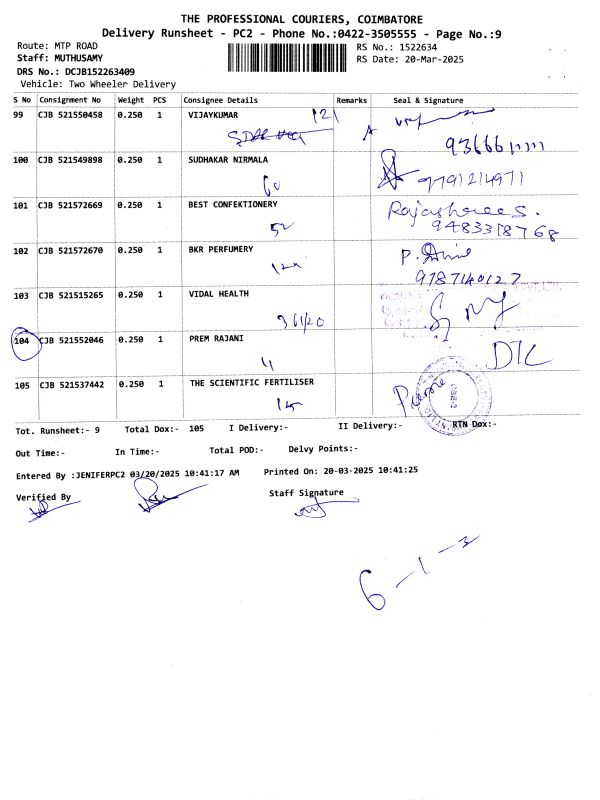 THE PROFESSIONAL COURIERS, COIMBATORE
Delivery Runsheet - PC2 - Phone No.:0422-3505555 - Page No.:9
Route: MTP ROAD
RS No.: 1522634
Staff: MUTHUSAMY
RS Date: 20-Mar-2025
DRS No.: DCJB152263409
Vehicle: Two Wheeler Delivery
S No Consignment No Weight PCS Consignee Details Remarks Seal & Signature
99 CJB 521550458 0.250 1 VIJAYKUMAR 121
100 CJB 521549898 0.250 1 SUDHAKAR NIRMALA
60 9791214971
101 CJB 521572669 0.250 1 BEST CONFEKTIONERY Rajashree S.
52 9483318768
102 CJB 521572670 0.250 1 BKR PERFUMERY P.
9187140127
103 CJB 521515265 0.250 1 VIDAL HEALTH
361/20
104 CJB 521552046 0.250 1 PREM RAJANI
11 DTC
105 CJB 521537442 0.250 1 THE SCIENTIFIC FERTILISER
Tot. Runsheet:- 9 Total Dox:- 105 I Delivery:- II Delivery:- RTN Dox:-
Out Time:- In Time:- Total POD:- Delvy Points:-
Entered By :JENIFERPC2 03/20/2025 10:41:17 AM Printed On: 20-03-2025 10:41:25
Verified By Staff Signature
6 - 1 - 2